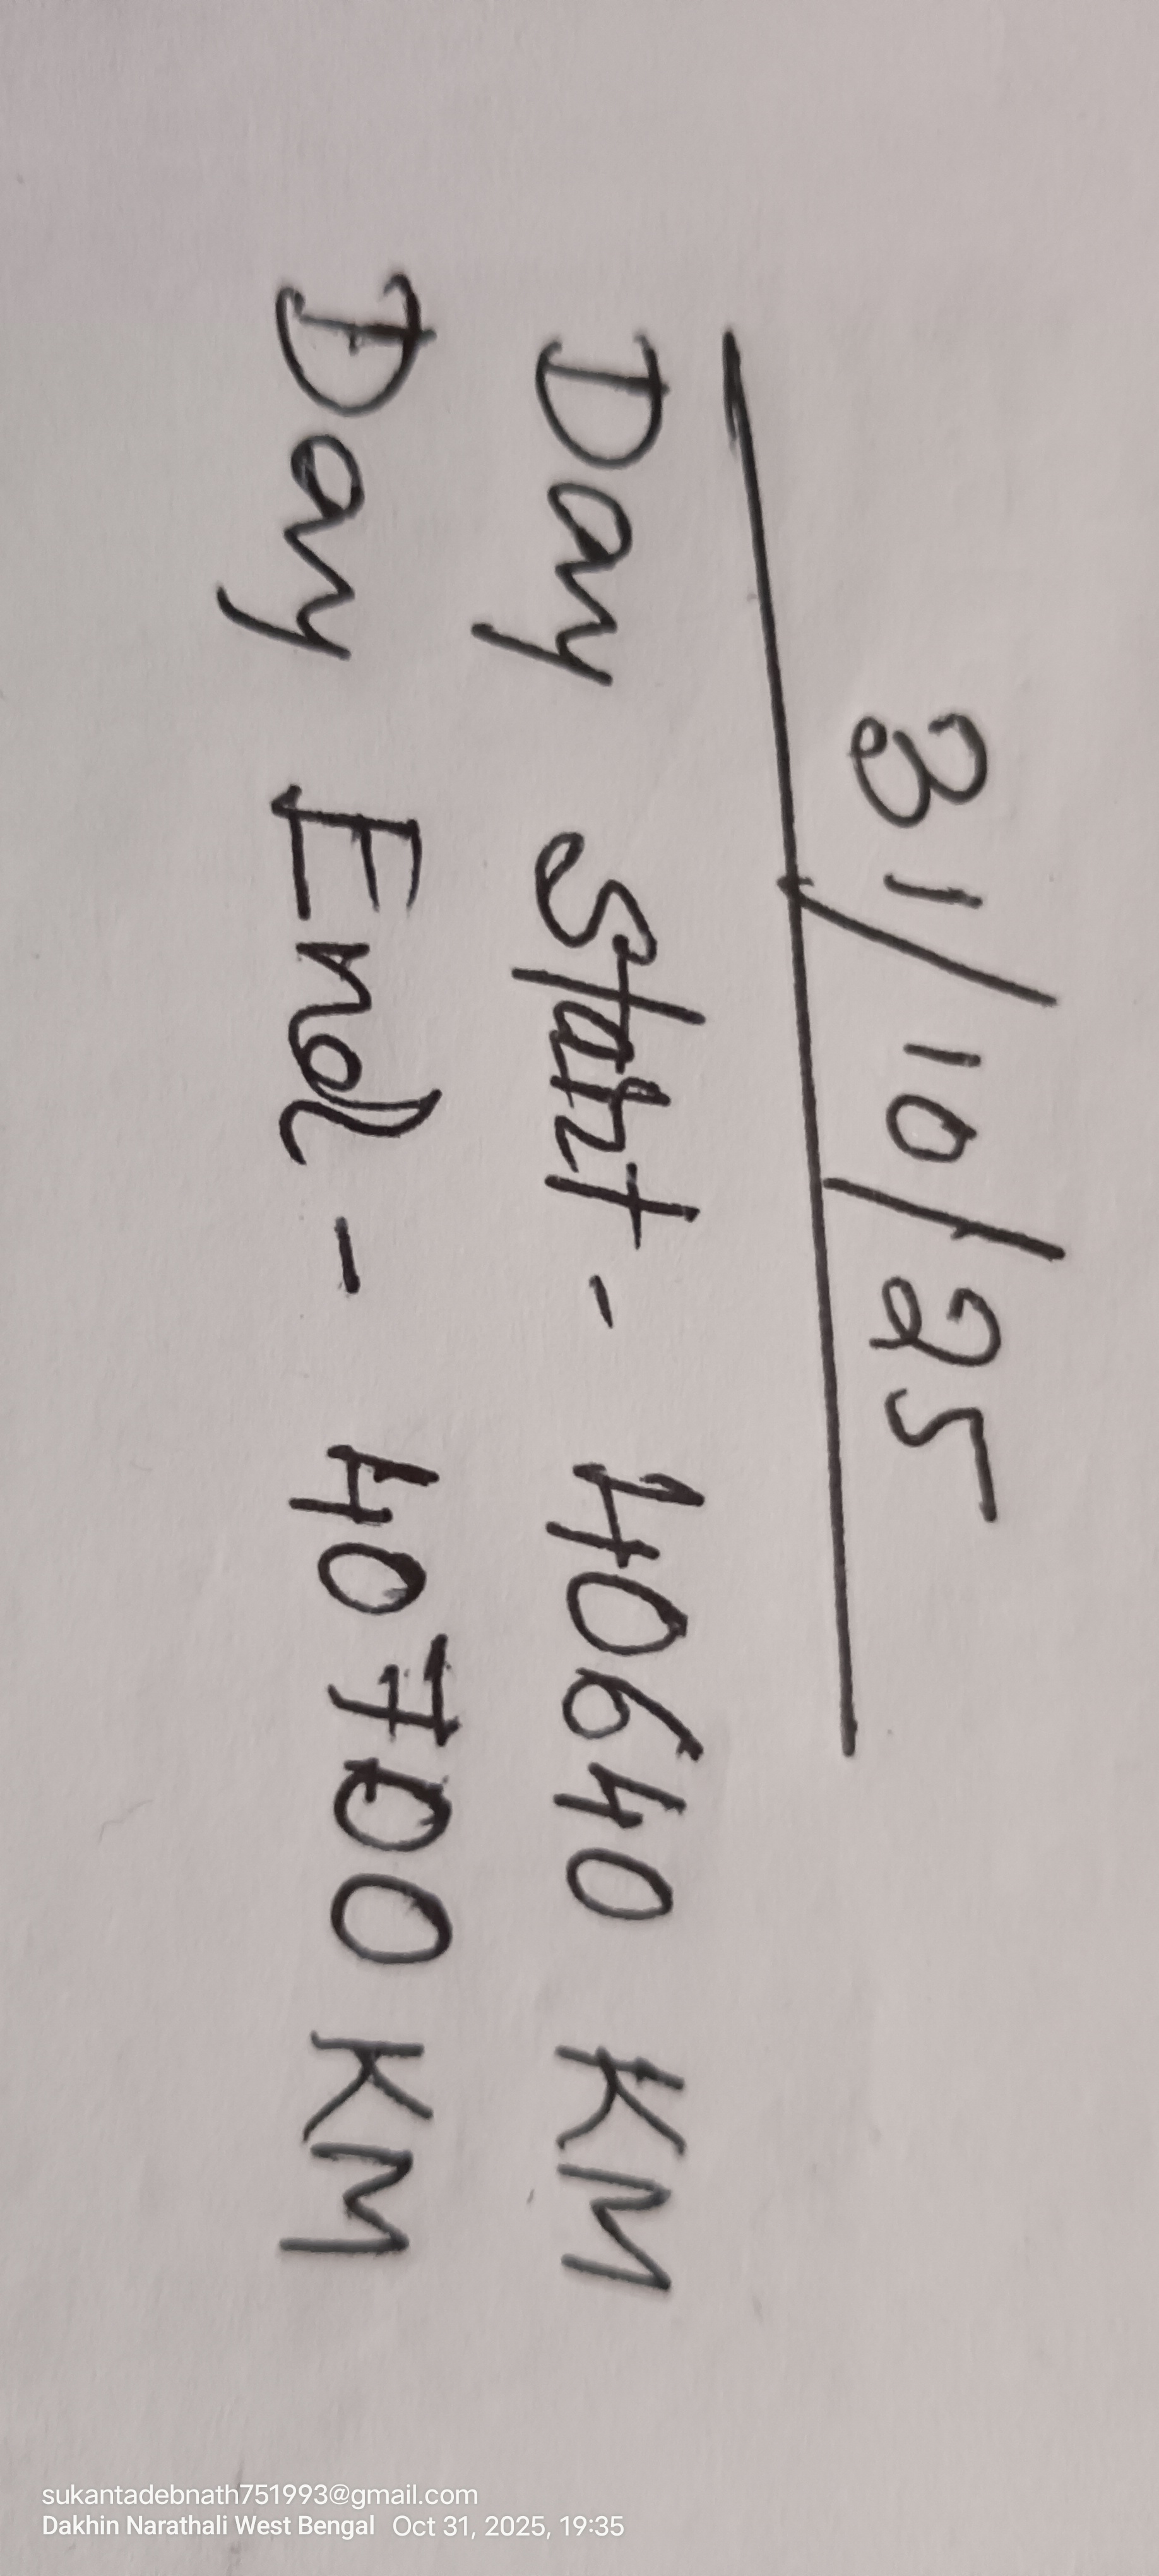 31/10/25
Day Start - 40640 KM
Day End - 40700 KM
sukantadebnath751993@gmail.com
Dakhin Narathali West Bengal Oct 31, 2025, 19:35